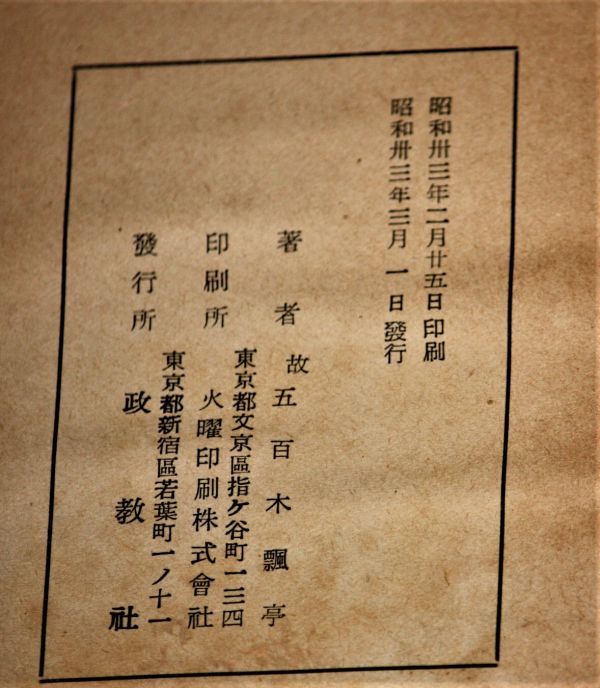 昭和卅三年二月廿五日印刷
昭和卅三年三月一日發行
著者 故 五百木飄亭
東京都文京區指ケ谷町一三四
印刷所 火曜印刷株式會社
東京都新宿區若葉町一ノ十一
發行所 政教社